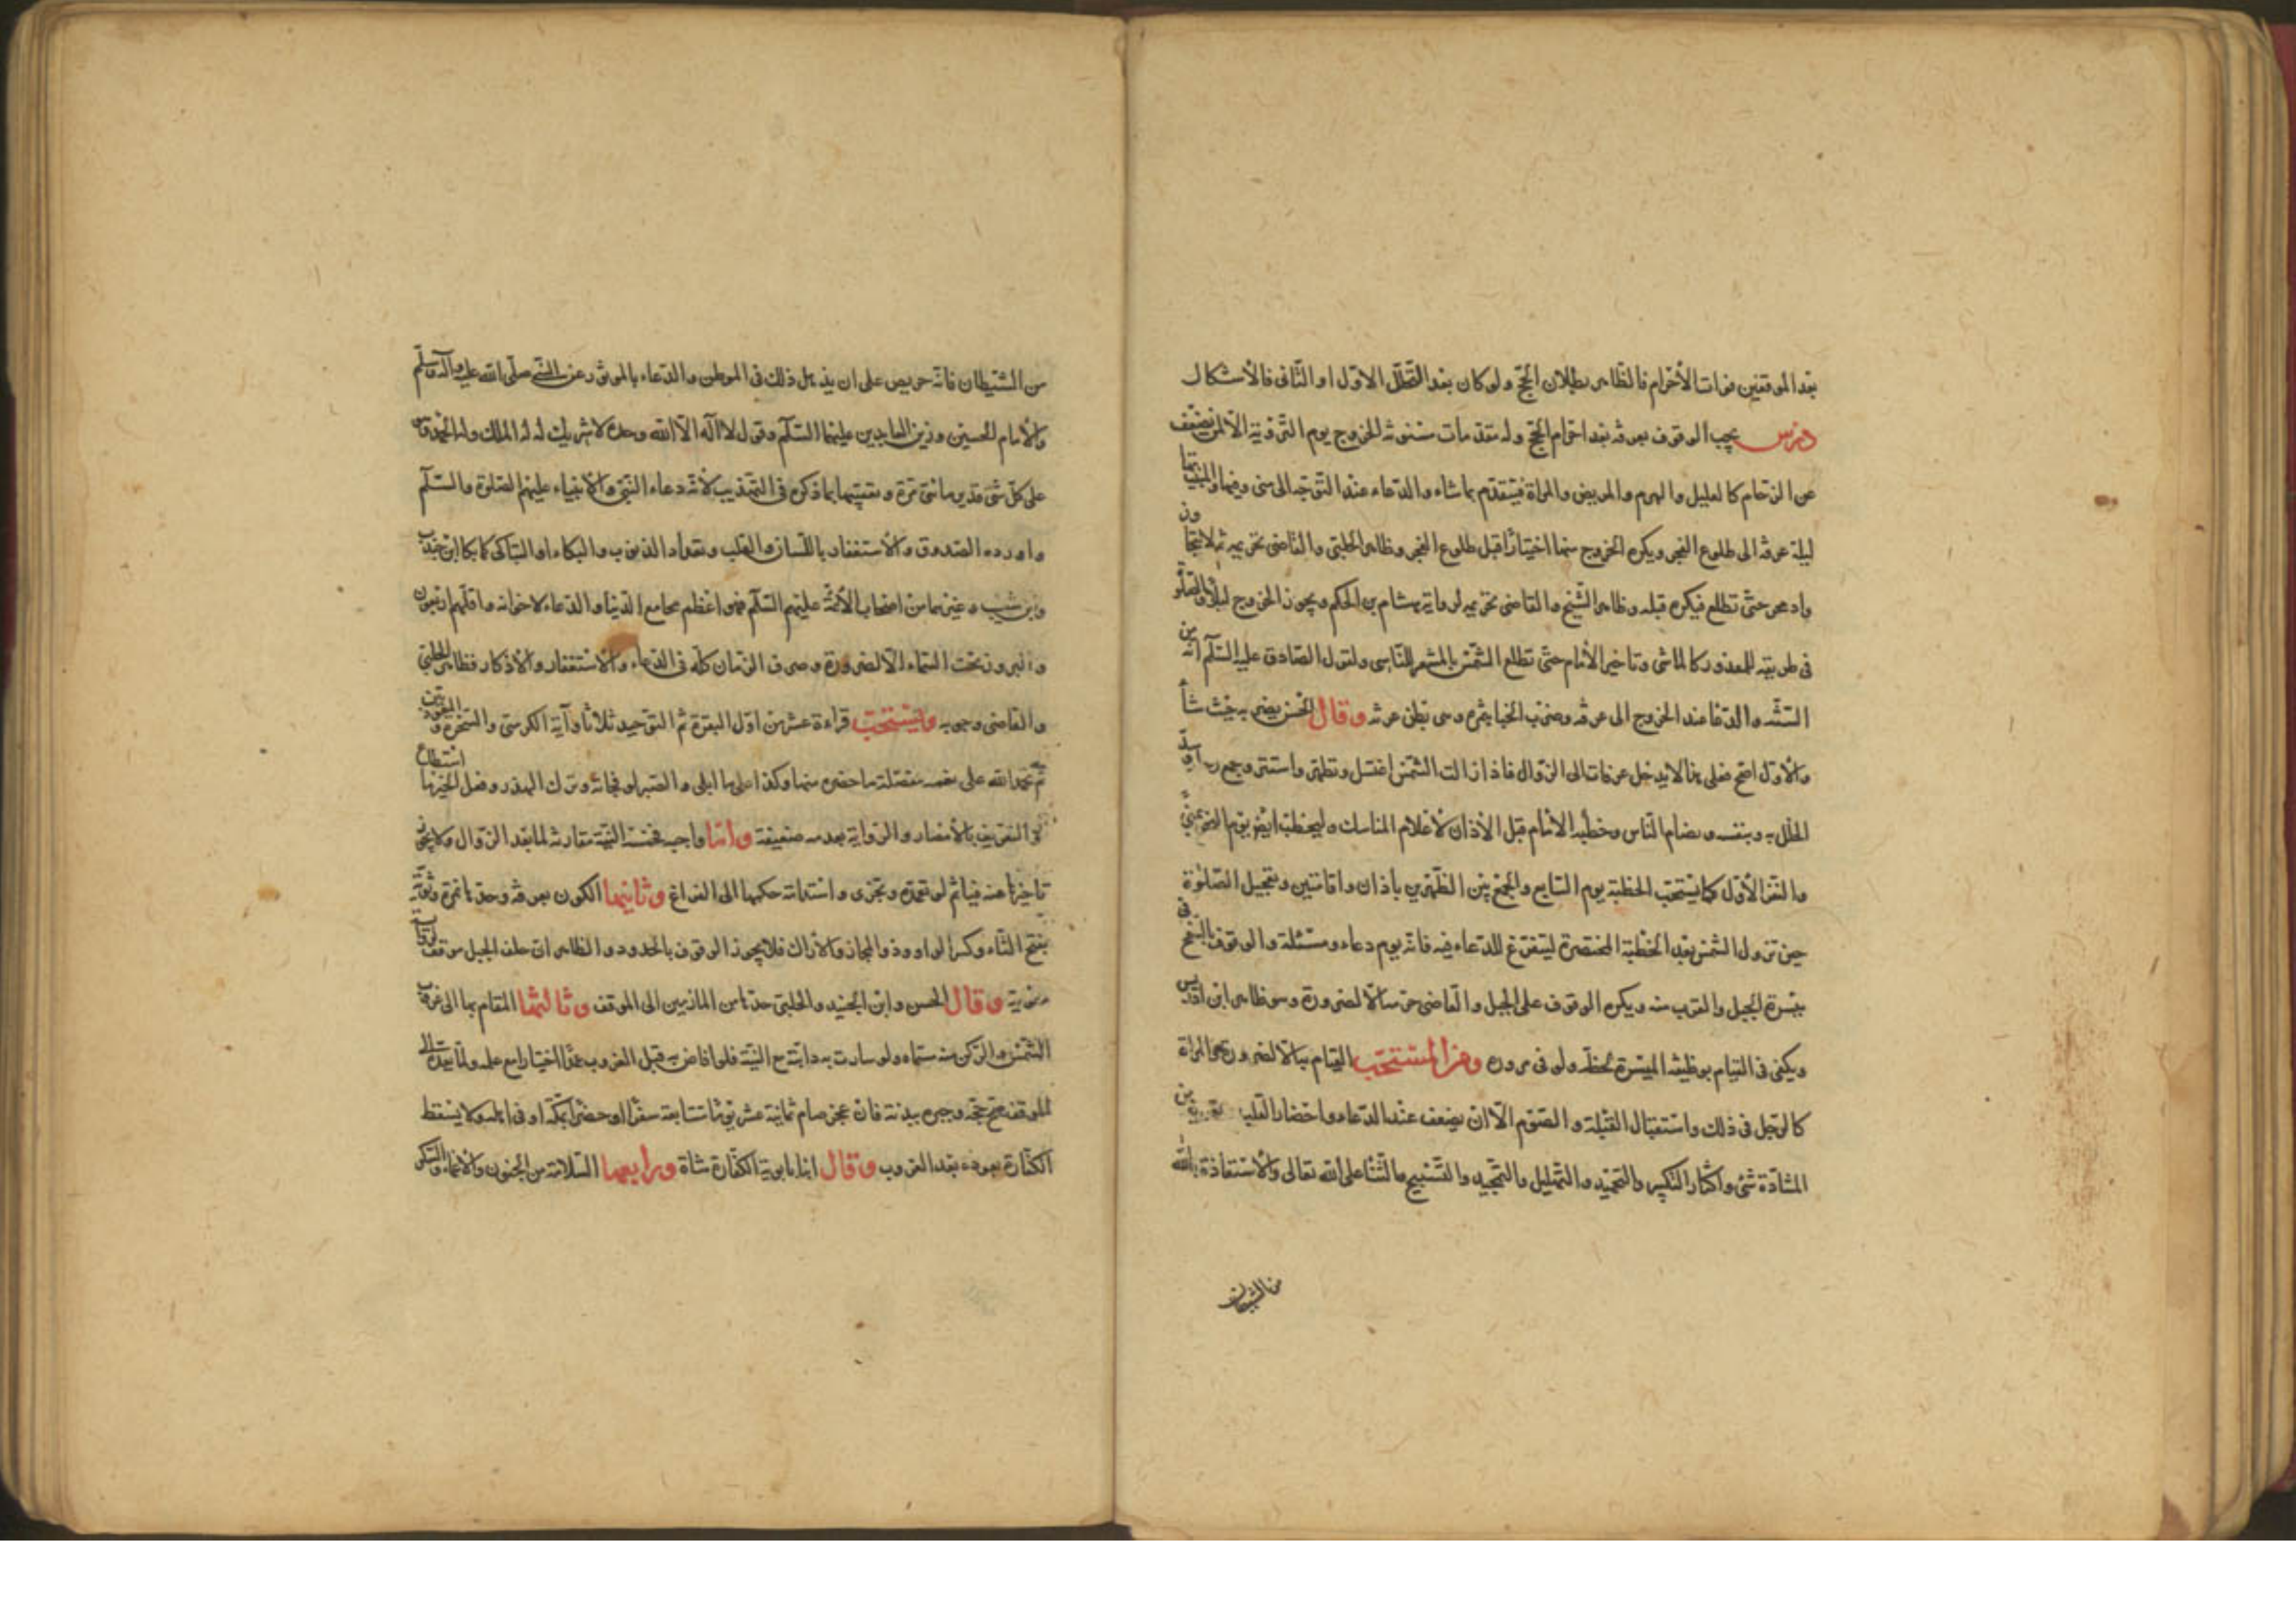 بعد الموقفين فوات الأحرام فالظاهر بطلان الحجّ ولو كان بعد التحلّل الاوّل او الثّانى فالأشكال
درس يجب الوقوف بعرفة بعد احرام الحجّ وله مقدّمات مسنونة للخروج يوم التّروية الّا لمن يضعف
عن الزحام كالعليل والهرم والمريض والمراة فيتقدّم بماشاء والدّعاء عند التّوجّه الى منى وفيها والمبيت بها
ليلة عرفة الى طلوع الفجر ويكره الخروج منها اختيارًا قبل طلوع الفجر وظاهر الحلبى والقاضى تحريمه ثمّ لا يتجاوز
وادى محسر حتّى تطلع فيكره قبله وظاهر الشّيخ والقاضى تحريمه لرواية هشام بن الحكم ويجوز الخروج ليلًا والصّلوة
فى طريقه للمعذور كالماشى وتاخير الأمام حتّى تطلع الشّمس بالمشعر للتّاسى ولقول الصّادق عليه السّلم انّه من
السّنّة والدّعا عند الخروج الى عرفة وضرب الخبا بنمرة وهى بطن عرنة وقال الحسن يضربه حيث شاء
والأوّل اصحّ فعلى هذا لا يدخل عرفات الى الزّوال فاذا زالت الشّمس اغتسل وتطهّر واستتر وجمع رحله وسدّ
الخلل به وبنفسه وبضام النّاس وخطبة الأمام قبل الأذان لأعلام المناسك وليخطب ايضًا يوم النّحر بمنى
والنّفر الأوّل كما يستحبّ الخطبة يوم السّابع والجمع بين الظّهرين باذان واقامتين وتعجيل الصّلوة
حين تزول الشّمس بعد الخطبة المختصرة ليتفرّغ للدّعاء فيه فانّه يوم دعاء ومسئلة والوقوف فى السّفح
بميسرة الجبل والقرب منه ويكره الوقوف على الجبل والقاضى حرّمه الّا لضرورة وهو ظاهر ابن ادريس
ويكفى فى القيام بوظيفة الميسرة لحظة ولو فى مروره ومن المستحبّ القيام بها الّا لضرورة والمراة
كالرّجل فى ذلك واستقبال القبلة والصّوم الّا ان يضعف عند الدّعاء واحضار القلب وتفريغه من
المشادّة شئ واكثار التّكبير والتّحميد والتّهليل والتّمجيد والتّسبيح والثّنا على الله تعالى والأستعاذة بالله
من الشيطان
من الشّيطان فانّه حريص على ان يذهل ذلك فى الموطن والدّعاء بالموثور عن النّبىّ صلّى الله عليه وآله وسلّم
والأمام الحسين وزين العابدين عليهما السّلم وقول لا اله الّا الله وحده لا شريك له له الملك وله الحمد وهو
على كلّ شئ قدير مائتى مرّة وتعقيبها بما ذكره فى التّهذيب لأنّه دعاء النّبىّ والأنبياء عليهم الصّلوة والسّلم
واورده الصّدوق والأستغفار باللّسان والقلب وتعداد الذّنوب والبكاء او التّباكى كما بكا ابن جندب
وابن شعيب وغيرهما من اصحاب الأئمّة عليهم السّلم فهو اعظم مجامع الدّنيا والدّعاء لاخوانه واقلّهم اربعون
والبروز تحت السّماء الّا لضرورة وصرف الزّمان كلّه فى الدّعاء والأستغفار والأذكار فظاهر الحلبى
والقاضى وجوبه ويستحبّ قراءة عشر من اوّل البقرة ثمّ التّوحيد ثلاثًا وآية الكرسى والسّخرة والمعوّذتين
ثمّ يحمد الله على نعمه مفصّلة ما حضره منها وكذا على ما ابلى والصّبر لو فجائه وترك الهذر وفعل الخير ما استطاع
التّعريف بالأمصار والرّواية بعدمه ضعيفة وامّا واجبه فخمسة النّيّة مقارنة لما بعد الزّوال ولا يجوز
تاخيرها عنه فياثم لو تعمّده ويجزى واستدامة حكمها الى الفراغ وثانيها الكون بعرفة وحدّها نمرة وثويّة
بفتح الثّاء وكسر الواو وذو المجاز والأراك فلا يجوز الوقوف بالحدود والظاهر انّ خلف الجبل موقف لرواية
وقال الحسن وابن الجنيد والحلبى حدّها من المازمين الى الموقف وثالثها المقام بها الى غروب
الشّمس والرّكن منه مسمّاه ولو سارت به دابّته مع النّيّة فلو افاض قبل الغروب عمدًا اختيارا مع علمه ولمّا يعد الى
الموقف صحّ حجّه وجبره ببدنة فان عجز صام ثمانية عشر يومًا متتابعة سفرًا او حضرًا بمكّة او فى اهله ولا يسقط
الكفّارة بعوده بعد الغروب وقال ابنا بابويه الكفّارة شاة ورابعها السّلامة من الجنون والأغماء والسّكر